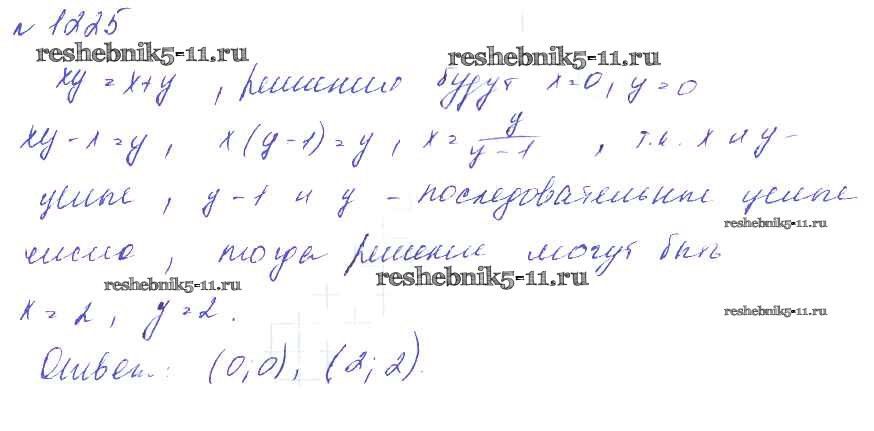 № 1225
reshebnik5-11.ru reshebnik5-11.ru
xy = x+y , решениями будут x=0, y=0
xy - x = y, x(y-1) = y, x = y/(y-1) , т.к. x и y -
целые, y-1 и y - последовательные целые
reshebnik5-11.ru
числа, тогда решения могут быть
reshebnik5-11.ru reshebnik5-11.ru
x = 2, y = 2.
reshebnik5-11.ru
Ответ: (0;0), (2;2).